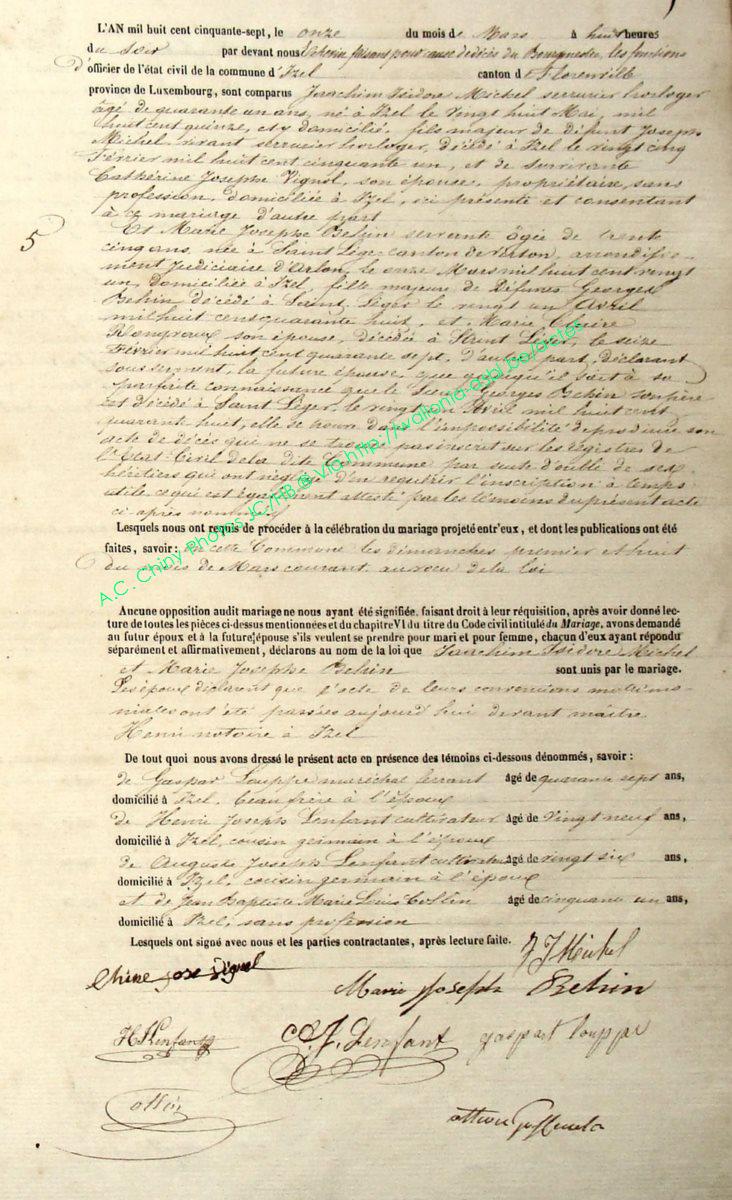 L'AN mil huit cent cinquante-sept, le onze du mois de Mars à huit heures
du soir par devant nous Echevin faisant pour cause de décès du Bourgmestre, les fonctions
d'officier de l'état civil de la commune d'Izel canton de Florenville
province de Luxembourg, sont comparus Joachim Isidore Michel serrurier horloger
âgé de quarante un ans, né à Izel le vingt huit Mai, mil
huit cent quinze, et y domicilié, fils majeur de défunt Joseph
Michel vivant serrurier horloger, décédé à Izel le vingt cinq
Février mil huit cent cinquante un, et de survivante
Cathérine Josephe Vignol, son épouse, propriétaire, sans
profession, domiciliée à Izel, ici présente et consentant
à ce mariage d'autre part
5
Et Marie Josephe Behin servante âgée de trente
cinq ans, née à Saint Léger canton de Virton, arrondisse-
ment Judiciaire d'Arlon, le onze Mars mil huit cent vingt
un, domiciliée à Izel, fille majeure de Défunts Georges
Behin décédé à Saint Léger le vingt un Avril
mil huit cent quarante huit, et Marie Claire
son épouse, décédée à Saint Léger, le seize
Février mil huit cent quarante sept, d'autre part, déclarant
sous serment, la future épouse, que quoiqu'il soit à sa
parfaite connaissance que le Sieur Georges Behin son père
est décédé à Saint Léger, le vingt un Avril mil huit cent
quarante huit, elle se trouve dans l'impossibilité de produire son
acte de décès qui ne se trouve pas inscrit sur les registres de
l'Etat-Civil de la dite Commune par suite d'oubli de ses
héritiers qui ont négligé d'en requérir l'inscription à temps
utile, ce qui est également attesté par les témoins du présent acte
ci-après nommés
Lesquels nous ont requis de procéder à la célébration du mariage projeté entr'eux, et dont les publications ont été
faites, savoir: en cette Commune les dimanches premier et huit
du mois de Mars courant, au voeu de la loi
A.C. Chiny Photos JC/HB @ Via http://wallonia-asbl.be/actes
Aucune opposition audit mariage ne nous ayant été signifiée, faisant droit à leur réquisition, après avoir donné lec-
ture de toutes les pièces ci-dessus mentionnées et du chapitre VI du titre du Code civil intitulé du Mariage, avons demandé
au futur époux et à la future épouse s'ils veulent se prendre pour mari et pour femme, chacun d'eux ayant répondu
séparément et affirmativement, déclarons au nom de la loi que Joachim Isidore Michel
et Marie Josephe Behin sont unis par le mariage.
Les époux déclarent que l'acte de leurs conventions matrimo-
niales ont été passées aujourd'hui devant maître
Henri notaire à Izel
De tout quoi nous avons dressé le présent acte en présence des témoins ci-dessous dénommés, savoir :
de Gaspar Louppe maréchal ferrant âgé de quarante sept ans,
domicilié à Izel, beau frère à l'époux
de Henri Joseph Lenfant cultivateur âgé de vingt neuf ans,
domicilié à Izel, cousin germain à l'époux
de Auguste Joseph Lenfant cultivateur âgé de vingt six ans,
domicilié à Izel, cousin germain à l'époux
et de Jean Baptiste Marie Louis Collin âgé de cinquante un ans,
domicilié à Izel, sans profession
Lesquels ont signé avec nous et les parties contractantes, après lecture faite.
J J Michel
jose Vignol
Marie Joseph Behin
H J Lenfant
A J. Lenfant
gaspart louppe